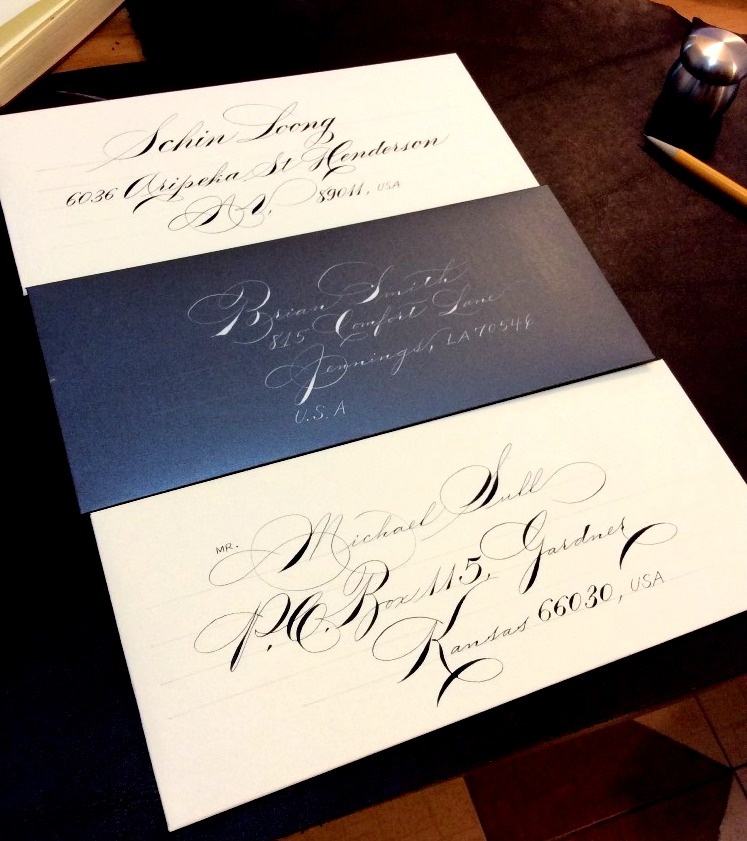 Schin Loong
6036 Aripeka St Henderson
NV, 89011, USA
Brian Smith
815 Comfort Lane
Jennings, LA 70546
U.S.A
MR. Michael Sull
P.O. Box 115, Gardner
Kansas 66030, USA